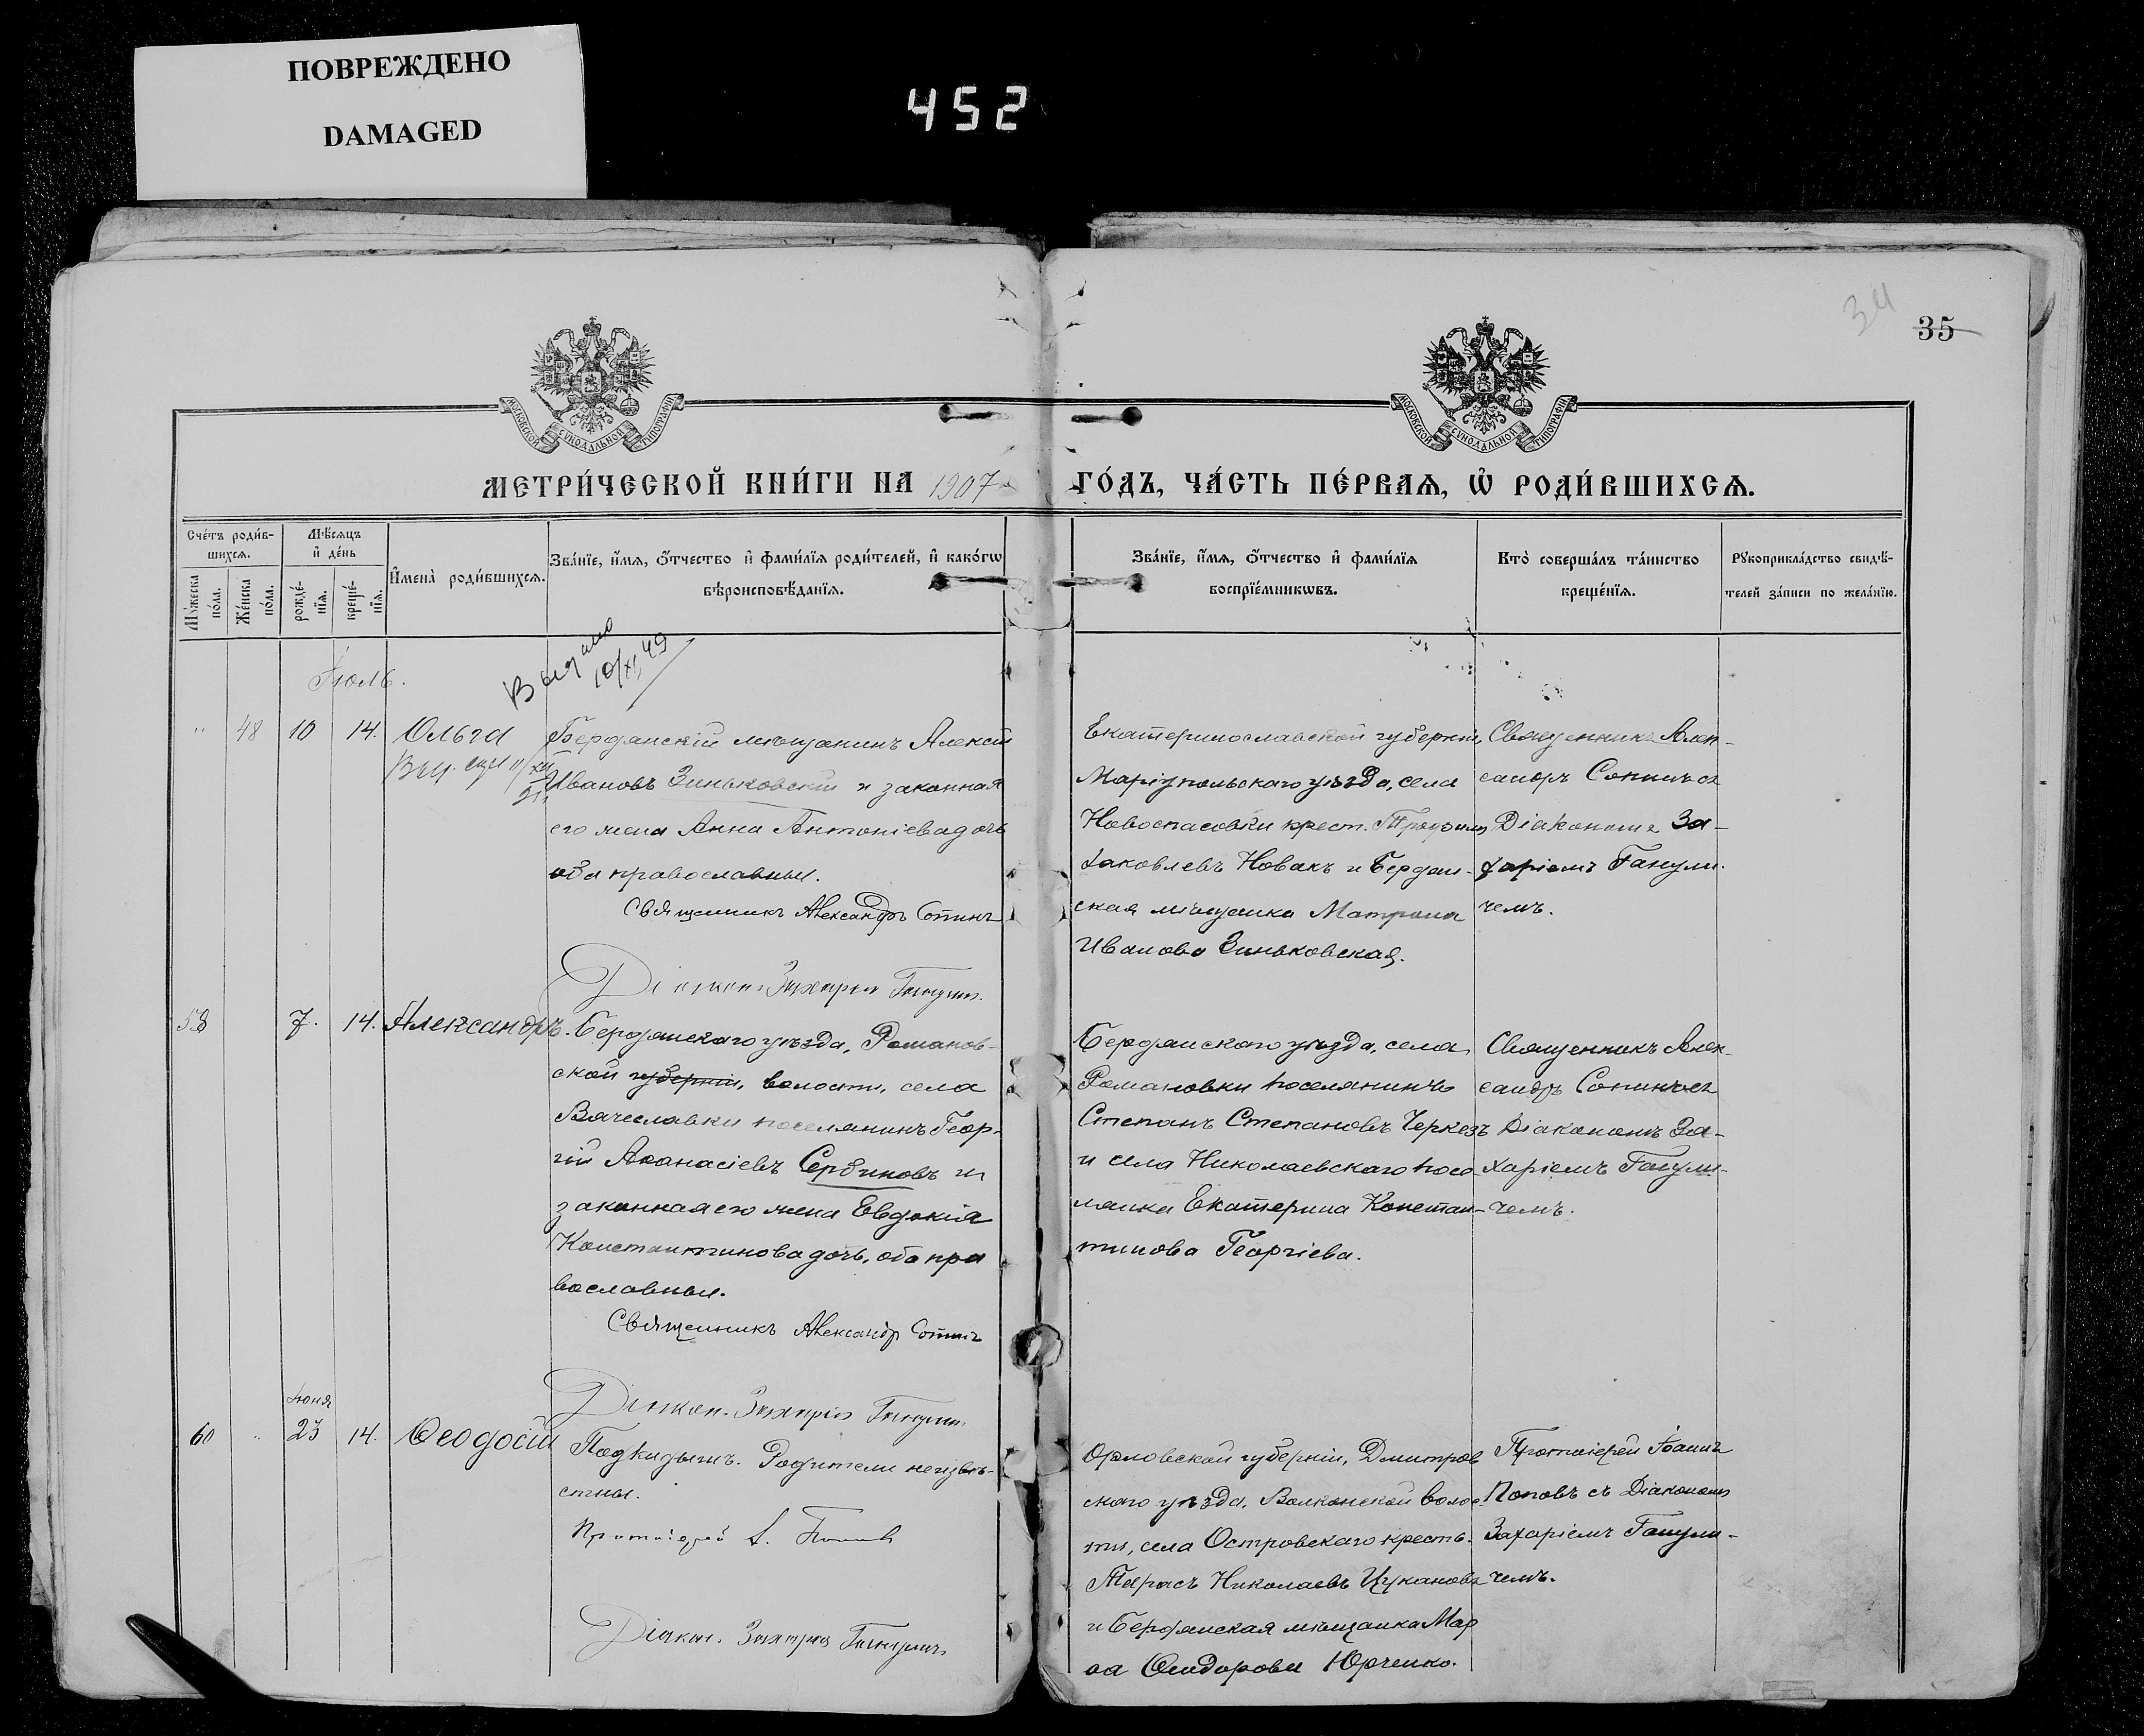 ПОВРЕЖДЕНО
DAMAGED
452
34
35
МОСКОВСКОЙ СѴНОДАЛЬНОЙ ТИПОГРАФІИ
МОСКОВСКОЙ СѴНОДАЛЬНОЙ ТИПОГРАФІИ
МЕТРИ́ЧЕСКОЙ КНИ́ГИ НА 1907
ГО́ДЪ, ЧА́СТЬ ПЕ́РВАѦ, Ѡ РОДИ́ВШИХСѦ.
Сче́тъ роди́в-
шихсѧ.
Мꙋ́жеска
по́ла.
Же́нска
по́ла.
Мѣ́сѧцъ
и҆ де́нь
рожде́-
нїѧ.
креще́-
нїѧ.
И҆мена̀ роди́вшихсѧ.
Зва́нїе, и҆́мѧ, ѻ҆́тчество и҆ фами́лїѧ роди́телей, и҆ како́гѡ
вѣроисповѣ́данїѧ.
Зва́нїе, и҆́мѧ, ѻ҆́тчество и҆ фами́лїѧ
воспрїе́мникѡвъ.
Кто̀ соверша́лъ та́инство
креще́нїѧ.
Рꙋкоприкла́дство свидѣ́-
телей за́писи по жела́нїю.
Іюль.
Выдано
10/XI 49
" 48 10 14. Ольга
Бердянскій мѣщанинъ Алексѣй
Ивановъ Зиньковскій и законная
его жена Анна Антоніева дочь
оба православные.
Священникъ Александръ Сопинъ
Діаконъ Захарія Ганулич
Екатеринославской губерніи,
Маріупольскаго уѣзда, села
Новоспасовки крест. Трофимъ
Яковлевъ Новакъ и Бердян-
ская мѣщанка Матрона
Иванова Зиньковская.
Священникъ Алек-
сандръ Сопинъ съ
Діакономъ За-
харіемъГанули-
чемъ.
58 7. 14. Александръ.
Бердянскаго уѣзда, Романов-
ской губерніи, волости, села
Вячеславки поселянинъ Геор-
гій Аѳанасіевъ Сербиновъ и
законная его жена Евдокія
Константинова дочь, оба пра
вославные.
Священникъ Александръ Сопинъ
Діакон. Захарія Ганулич
Бердянскаго уѣзда, села
Романовки поселянинъ
Степанъ Степановъ Черкезъ
и села Николаевскаго посе-
лянка Екатерина Констан-
тинова Георгіева.
Священникъ Алек-
сандръ Сопинъ съ
Діакономъ За-
харіемъ Ганули-
чемъ.
Іюня
60 " 23 14. Ѳеодосій
Подкидышъ. Родители неизвѣ-
стны.
Протоіерей І. Поповъ
Діакон. Захарія Ганулич
Орловской губерніи, Дмитров
скаго уѣзда, Волконской волос
ти, села Островскаго кресть.
Тарасъ Николаевъ Цукановъ
и Бердянская мѣщанка Мар
ѳа Ѳеодорова Юрченко.
Протоіерей Іоаннъ
Поповъ съ Діакономъ
Захаріемъ Ганули-
чемъ.